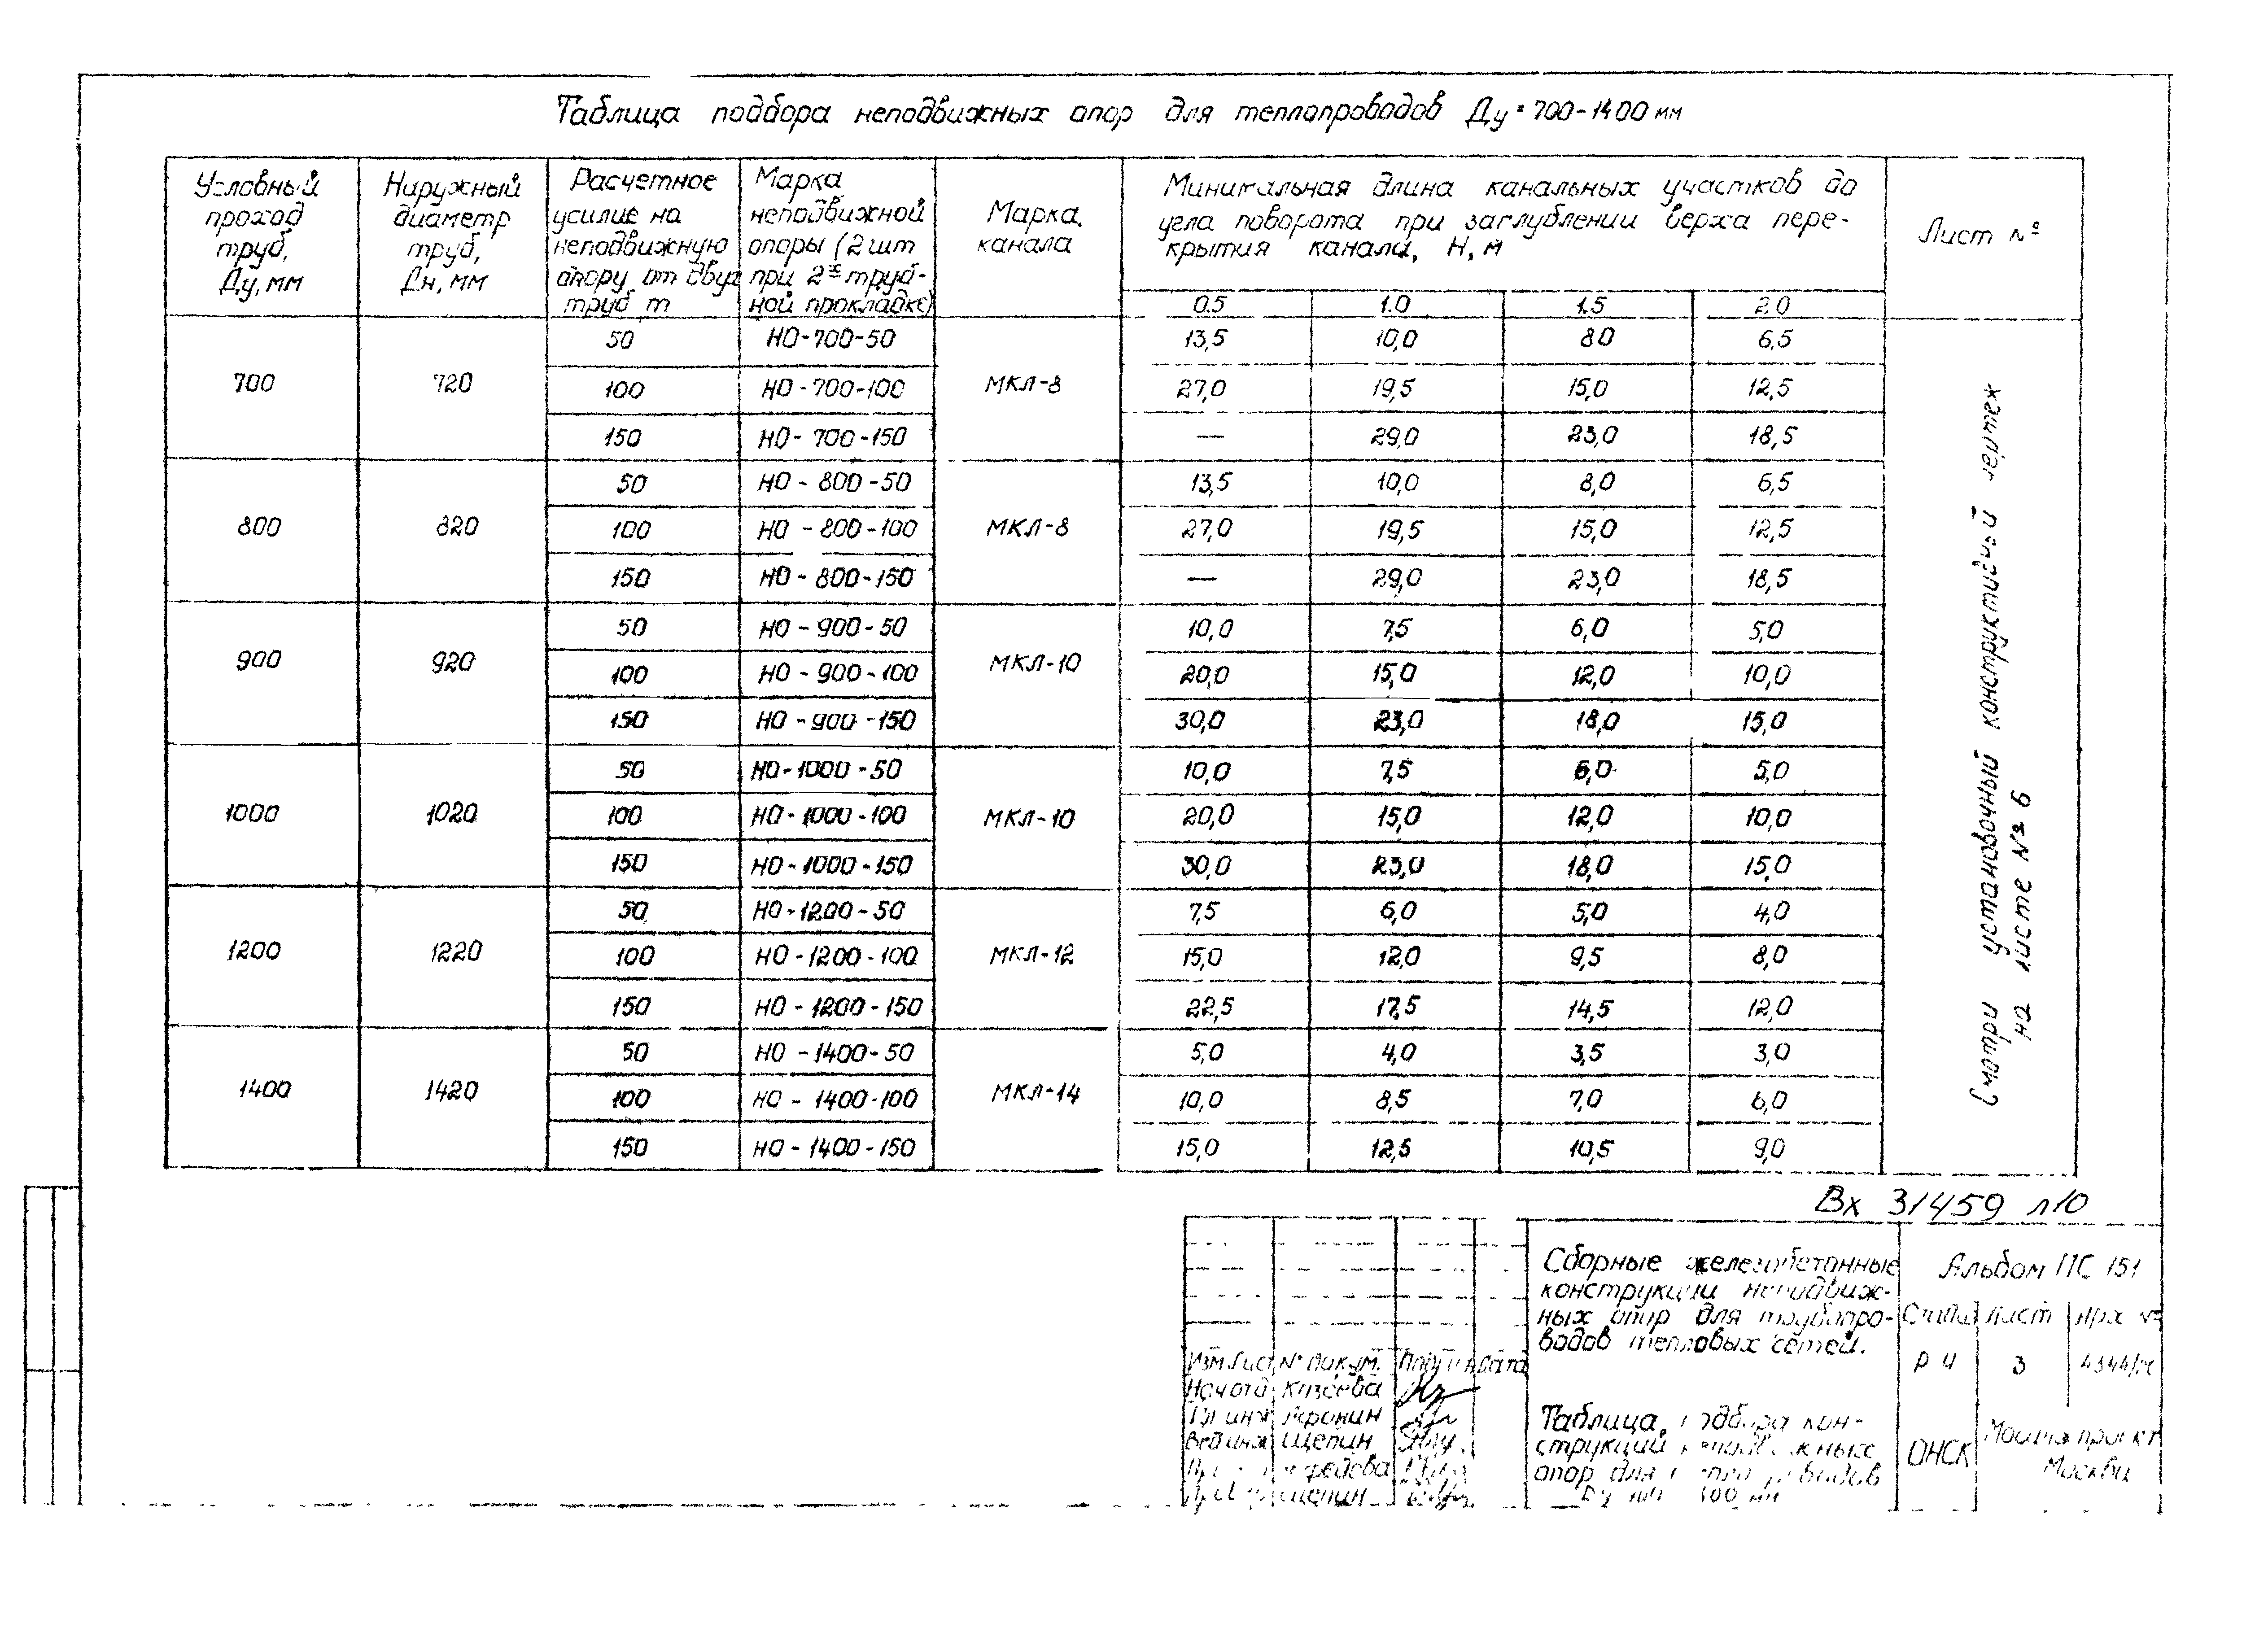 Таблица подбора неподвижных опор для теплопроводов Ду=700-1400 мм
Условный проход труб, Ду, мм
Наружный диаметр труб, Дн, мм
Расчетное усилие на неподвижную опору от двух труб т
Марка неподвижной опоры (2 шт при 2х трубной прокладке)
Марка канала
Минимальная длина канальных участков до
угла поворота при заглублении верха пере-
крытия канала, Н, м
Лист №
0.5 1.0 1.5 2.0
50 НО-700-50 13,5 10,0 8.0 6,5
700 720 100 НО-700-100 МКЛ-8 27,0 19,5 15,0 12,5
150 НО-700-150 — 29,0 23,0 18,5
50 НО-800-50 13,5 10,0 8,0 6,5
800 820 100 НО-800-100 МКЛ-8 27,0 19,5 15,0 12,5
150 НО-800-150 — 29,0 23,0 18,5
50 НО-900-50 10,0 7,5 6,0 5,0
900 920 100 НО-900-100 МКЛ-10 20,0 15,0 12,0 10,0
150 НО-900-150 30,0 23,0 18,0 15,0
50 НО-1000-50 10,0 7,5 6,0 5,0
1000 1020 100 НО-1000-100 МКЛ-10 20,0 15,0 12,0 10,0
150 НО-1000-150 30,0 23,0 18,0 15,0
50 НО-1200-50 7,5 6,0 5,0 4,0
1200 1220 100 НО-1200-100 МКЛ-12 15,0 12,0 9,5 8,0
150 НО-1200-150 22,5 17,5 14,5 12,0
50 НО-1400-50 5,0 4,0 3,5 3,0
1400 1420 100 НО-1400-100 МКЛ-14 10,0 8,5 7,0 6,0
150 НО-1400-150 15,0 12,5 10,5 9,0
Смотри установочный конструктивный чертеж
на листе № 6
Вх 31459 л10
Сборные железобетонные
конструкции неподвиж-
ных опор для трубопро-
водов тепловых сетей.
Альбом ПС 151
Лист Арх №
РЧ 3
Изм Лист № докум. Подп Дата
Щепин
Щепин
Таблица подбора кон-
струкций неподвижных
опор для
ОНСК
Мосинжпроект
Москва